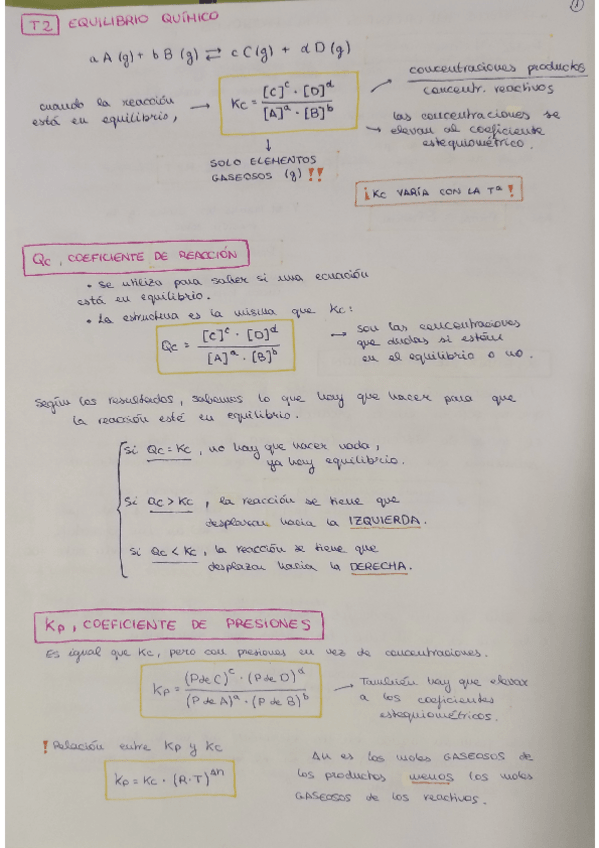 1
T2 EQUILIBRIO QUÍMICO
a A (g) + b B (g) ⇄ c C (g) + d D (g)
cuando la reacción
está en equilibrio,
→ Kc = [C]^c · [D]^d / [A]^a · [B]^b
concentraciones productos
concentr. reactivos
→ las concentraciones se
elevan al coeficiente
estequiométrico.
↓
SOLO ELEMENTOS
GASEOSOS (g) !!
¡Kc VARÍA CON LA Tª!
Qc, COEFICIENTE DE REACCIÓN
• Se utiliza para saber si una ecuación
está en equilibrio.
• La estructura es la misma que Kc:
Qc = [C]^c · [D]^d / [A]^a · [B]^b
→ son las concentraciones
que dudas si están
en el equilibrio o no.
Según los resultados, sabemos lo que hay que hacer para que
la reacción esté en equilibrio.
Si Qc = Kc, no hay que hacer nada,
ya hay equilibrio.
Si Qc > Kc, la reacción se tiene que
desplazar hacia la IZQUIERDA.
Si Qc < Kc, la reacción se tiene que
desplazar hacia la DERECHA.
Kp, COEFICIENTE DE PRESIONES
Es igual que Kc, pero con presiones en vez de concentraciones.
Kp = (P de C)^c · (P de D)^d / (P de A)^a · (P de B)^b
→ También hay que elevar
a los coeficientes
estequiométricos.
! Relación entre Kp y Kc
Kp = Kc · (R·T)^Δn
Δn es los moles GASEOSOS de
los productos menos los moles
GASEOSOS de los reactivos.